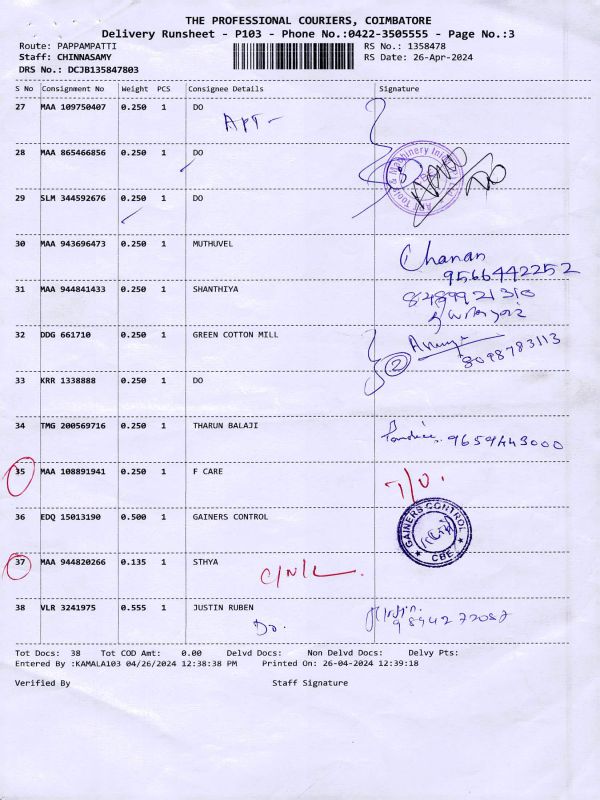 THE PROFESSIONAL COURIERS, COIMBATORE
Delivery Runsheet - P103 - Phone No.:0422-3505555 - Page No.:3
Route: PAPPAMPATTI RS No.: 1358478
Staff: CHINNASAMY RS Date: 26-Apr-2024
DRS No.: DCJB135847803
S No Consignment No Weight PCS Consignee Details Signature
27 MAA 109750407 0.250 1 DO
APT -
28 MAA 865466856 0.250 1 DO
29 SLM 344592676 0.250 1 DO
30 MAA 943696473 0.250 1 MUTHUVEL Chanan
9566442252
31 MAA 944841433 0.250 1 SHANTHIYA 8489921310
32 DDG 661710 0.250 1 GREEN COTTON MILL
2 8098783113
33 KRR 1338888 0.250 1 DO
34 TMG 200569716 0.250 1 THARUN BALAJI 9659443000
35 MAA 108891941 0.250 1 F CARE
36 EDQ 15013190 0.500 1 GAINERS CONTROL GAINERS CONTROL CBE
37 MAA 944820266 0.135 1 STHYA C/N/L
38 VLR 3241975 0.555 1 JUSTIN RUBEN
Do. 9894272087
Tot Docs: 38 Tot COD Amt: 0.00 Delvd Docs: Non Delvd Docs: Delvy Pts:
Entered By :KAMALA103 04/26/2024 12:38:38 PM Printed On: 26-04-2024 12:39:18
Verified By Staff Signature